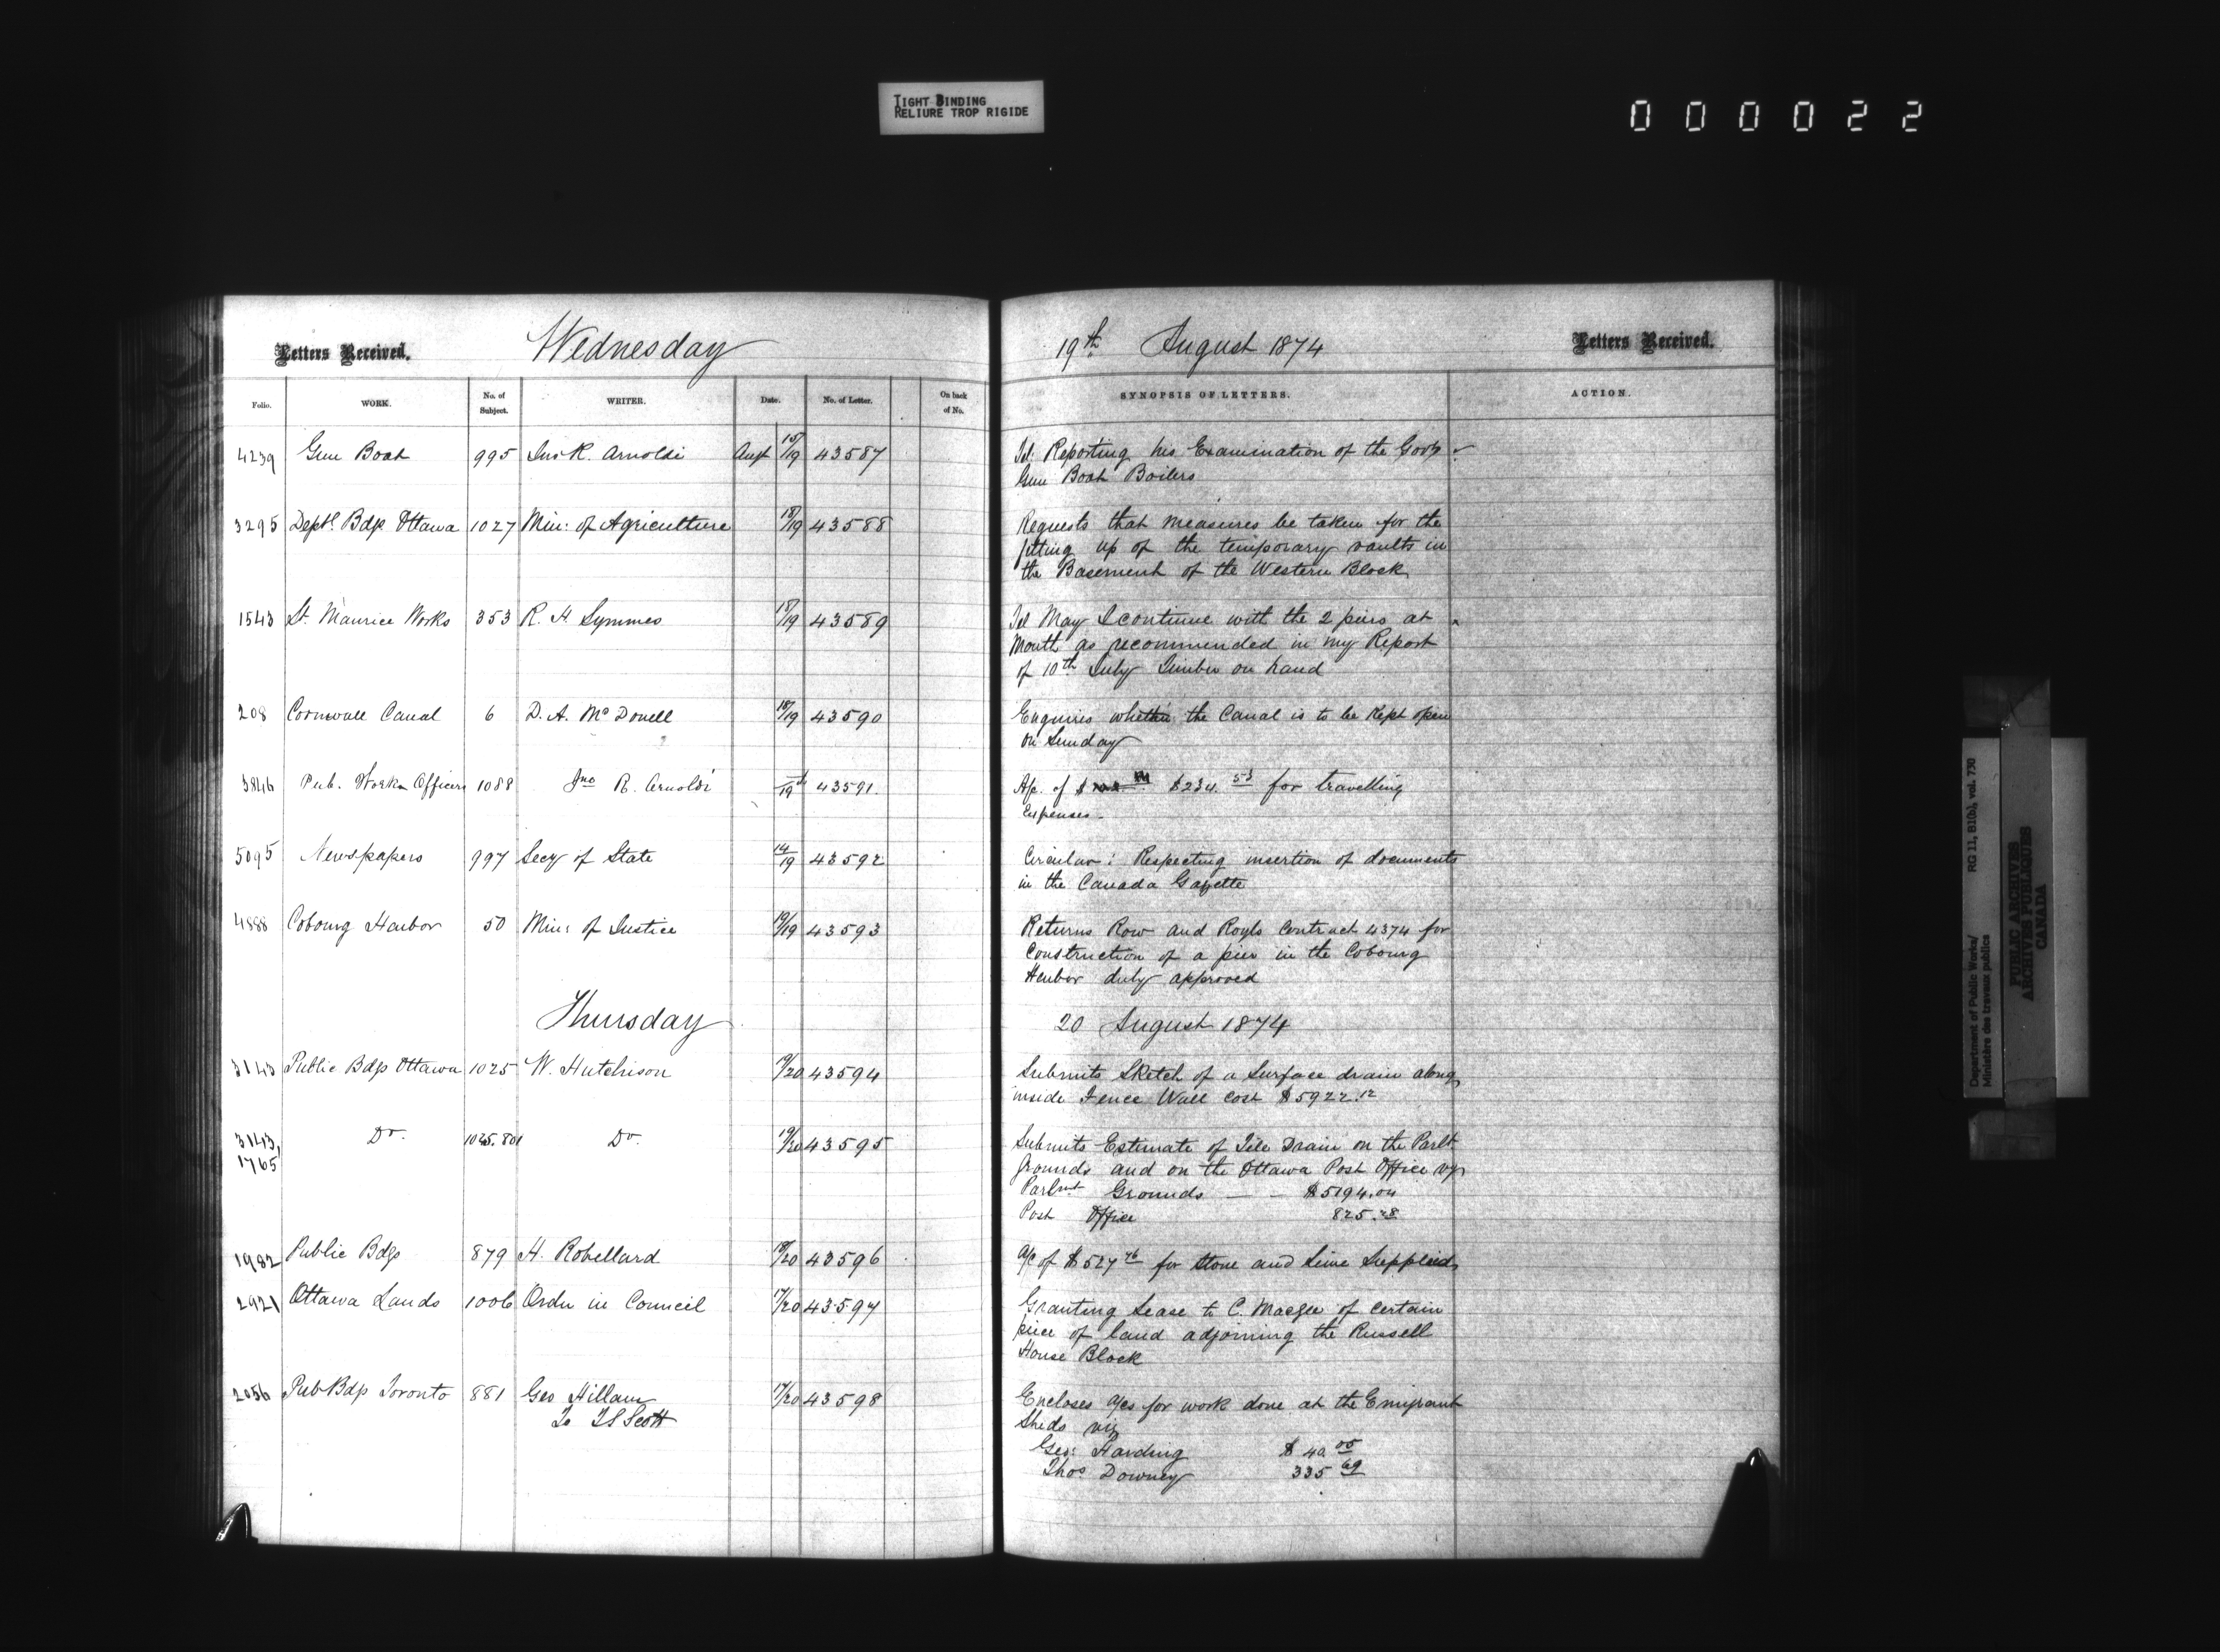 TIGHT BINDING
RELIURE TROP RIGIDE
000022
Letters Received. Wednesday 19th August 1874 Letters Received.
Folio. WORK. No. of Subject. WRITER. Date. No. of Letter. On back of No. SYNOPSIS OF LETTERS. ACTION.
4239 Gun Boat 995 Jno R. Arnoldi Augt 18/19 43587 Tel. Reporting his Examination of the Govt
Gun Boat Boilers
3295 Deptl Bdgs Ottawa 1027 Min: of Agriculture 18/19 43588 Requests that measures be taken for the
fitting up of the temporary vaults in
the Basement of the Western Block
1543 St. Maurice Works 353 R. H Symmes 18/19 43589 Tel May I continue with the 2 piers at
Mouth as recommended in my Report
of 10th July Timber on hand
208 Cornwall Canal 6 D. A. McDonell 18/19 43590 Enquires whether the Canal is to be Kept open
on Sunday
3846 Pub. Works Officers 1088 Jno R. Arnoldi /19 43591 A/c. of $ $234.53 for travelling
Expenses.
5095 Newspapers 997 Secy of State 14/19 43592 Circular: Respecting insertion of documents
in the Canada Gazette
4888 Cobourg Harbor 50 Min: of Justice 19/19 43593 Returns Row and Contract 4374 for
Construction of a pier in the Cobourg
Harbor duly approved
Thursday 20 August 1874
3143 Public Bdgs Ottawa 1025 W. Hutchison 19/20 43594 Submits Sketch of a Surface drain along
inside Fence Wall cost $5922.12
3143, 1765 Do. 1025.801 Do. 19/20 43595 Submits Estimate of Tile Drain on the Parlt
Grounds and on the Ottawa Post Office viz
Parlmt Grounds — - $5194.04
Post Office 825.28
1982 Public Bdgs 879 H. Robellard 18/20 43596 A/c of $527.46 for Stone and Lime Supplied
2921 Ottawa Lands 1006 Order in Council 17/20 43597 Granting Lease to C. Magee of certain
piece of land adjoining the Russell
House Block
2056 Pub Bdgs Toronto 881 Geo Hillam 17/20 43598 Encloses a/cs for work done at the Emigrant
To T S Scott Sheds viz
Geo: Harding $40.05
Thos Downey 335.69
Department of Public Works/ RG 11, B1(b), vol. 730
Ministère des travaux publics
PUBLIC ARCHIVES
ARCHIVES PUBLIQUES
CANADA